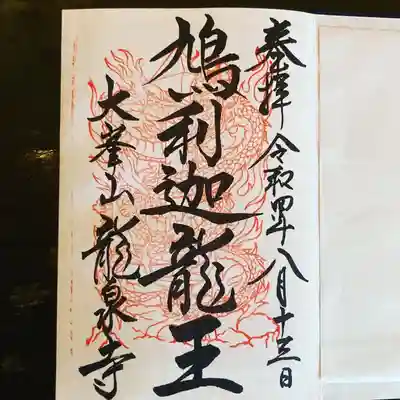 奉拝 令和四年八月十三日
鳩利迦龍王
大峯山 龍泉寺